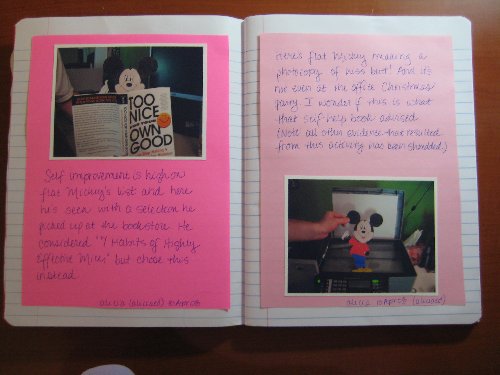 TOO
NICE
FOR YOUR
OWN
GOOD
Self improvement is high on
flat Mickey's list and here
he's seen with a selection he
picked up at the bookstore. He
considered "7 Habits of Highly
Effective Mice" but chose this
instead.
alicia (aliceao) 10 Apr 05
Here's flat Mickey making a
photocopy of his butt! And it's
not even at the office Christmas
party. I wonder if this is what
that self-help book advised.
(Note: all other evidence that resulted
from this activity has been shredded.)
alicia 10 Apr 05